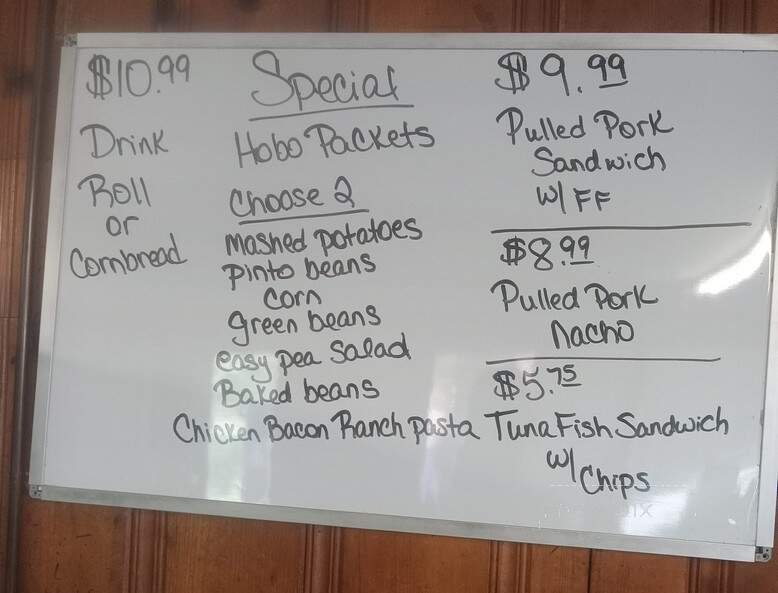 $10.99
Drink
Roll
or
Cornbread
Special
Hobo Packets
Choose 2
mashed potatoes
pinto beans
corn
green beans
easy pea salad
Baked beans
Chicken Bacon Ranch pasta
$9.99
Pulled Pork
Sandwich
W/ FF
$8.99
Pulled Pork
nacho
$5.75
Tuna Fish Sandwich
W/
Chips